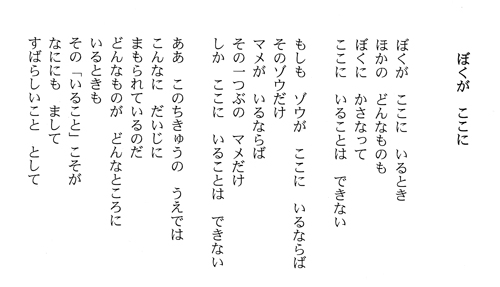 ぼくが　ここに
ぼくが　ここに　いるとき
ほかの　どんなものも
ぼくに　かさなって
ここに　いることは　できない
もしも　ゾウが　ここに　いるならば
そのゾウだけ
マメが　いるならば
その一つぶの　マメだけ
しか　ここに　いることは　できない
ああ　このちきゅうの　うえでは
こんなに　だいじに
まもられているのだ
どんなものが　どんなところに
いるときも
その「いること」こそが
なににも　まして
すばらしいこと　として